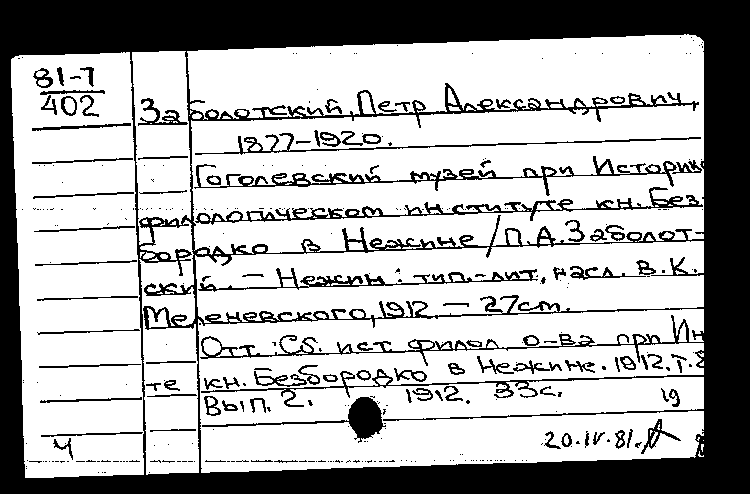 81-7
402
Заболотский, Петр Александрович,
1877-1920.
Гоголевский музей при Историко
филологическом институте кн. Без-
бородко в Нежине / П.А. Заболот-
ский. - Нежин: тип.-лит, насл. В.К.
Меленевского, 1912. - 27 cm.
Отт.: Сб. ист. филол. о-ва при Ин
те кн. Безбородко в Нежине. 1912. т. 8
Вып. 2. 1912. 33 с.
19
Ч 20.IV.81.